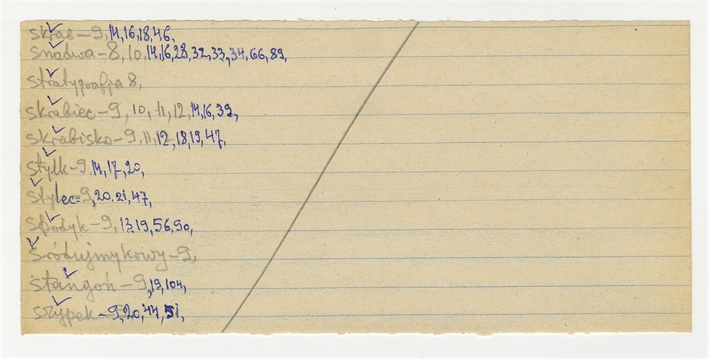 skras - 9, 14, 16, 18, 46,
snadwa - 8, 10, 14, 16, 28, 32, 33, 34, 66, 89,
stratygrafja 8,
skrabiec - 9, 10, 11, 12, 14, 16, 39,
skrabisko - 9, 11, 12, 18, 19, 47,
stylk - 9, 14, 17, 20,
stylec - 9, 20, 21, 47,
spodyk - 9, 13, 19, 56, 90,
Śródujmykowy - 9,
stangoń - 9, 19, 104,
szypek - 9, 20, 44, 51,